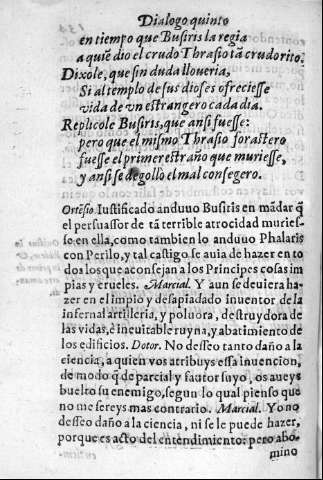 Dialogo quinto
en tiempo que Busiris la regia
a quiẽ dio el crudo Thrasio tã crudo rito.
Dixole, que sin duda lloueria,
Si al templo de sus dioses ofreciesse
vida de vn estrangero cada dia.
Replicole Busiris, que ansi fuesse:
pero que el mismo Thrasio forastero
fuesse el primer estraño que muriesse,
y ansi se degollò el mal consegero.
Ortẽsio Iustificado anduuo Busiris en mãdar q̃
el persuassor de tã terrible atrocidad muries-
se en ella, como tambien lo anduuo Phalaris
con Perilo, y tal castigo se auia de hazer en to
dos los que aconsejan a los Principes cosas im
pias y crueles. Marcial. Y aun se deuiera ha-
zer en el impio y desapiadado inuentor de la
infernal artilleria, y poluora, destruydora de
las vidas, è ineuitable ruyna, y abatimiento de
los edificios. Dotor. No desseo tanto daño a la
ciencia, a quien vos atribuys essa inuencion,
de modo q̃ de parcial y fautor suyo, os aueys
buelto su enemigo, segun lo qual pienso que
no me sereys mas contrario. Marcial. Yo no
desseo daño a la ciencia, ni se le puede hazer,
porque es acto del entendimiento: pero abo-
mino